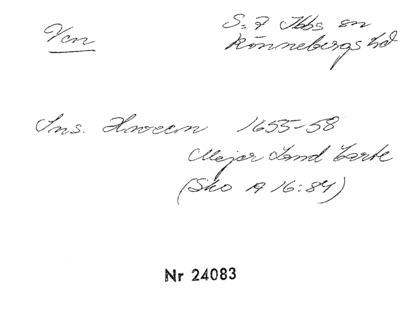 Ven
S:t Ibbs sn
Rönnebergs hd
Ins. Hween 1655-58
Mejer Land Carte
(Sko A 16:84)
Nr 24083